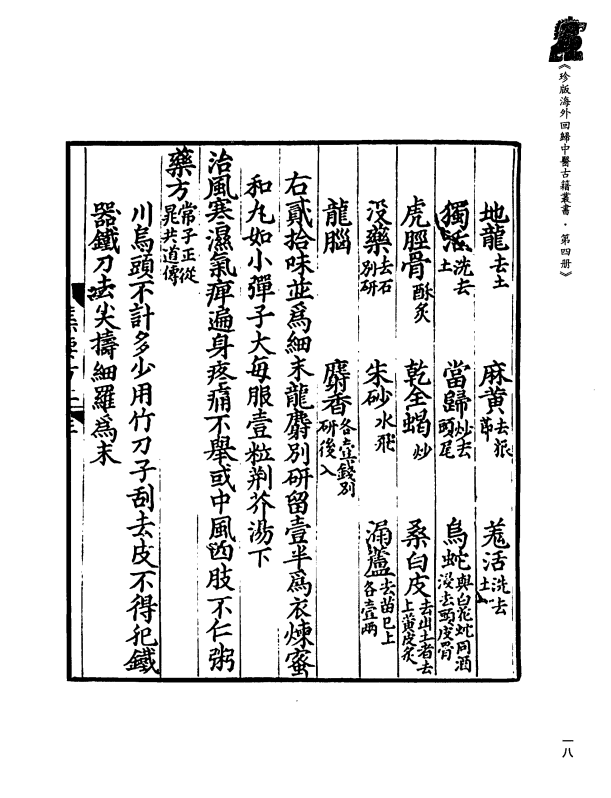 《珍版海外回歸中醫古籍叢書·第四册》
地龍去土 麻黄去根節 羗活洗去土
獨活洗去土 當歸炒去頭尾 烏蛇與白花蛇同酒浸去頭皮骨
虎脛骨酥炙 乾全蝎炒 桑白皮去出土者去上黄皮炙
没藥去石別研 朱砂水飛 漏蘆去苗已上各壹兩
龍腦 麝香各壹錢別研後入
右貳拾味並爲細末龍麝別研留壹半爲衣煉蜜
和丸如小彈子大每服壹粒荆芥湯下
治風寒濕氣痺遍身疼痛不舉或中風四肢不仁粥
藥方常子正從晁共道傳
川烏頭不計多少用竹刀子刮去皮不得犯鐵
器鐵刀去尖擣細羅爲末
一八